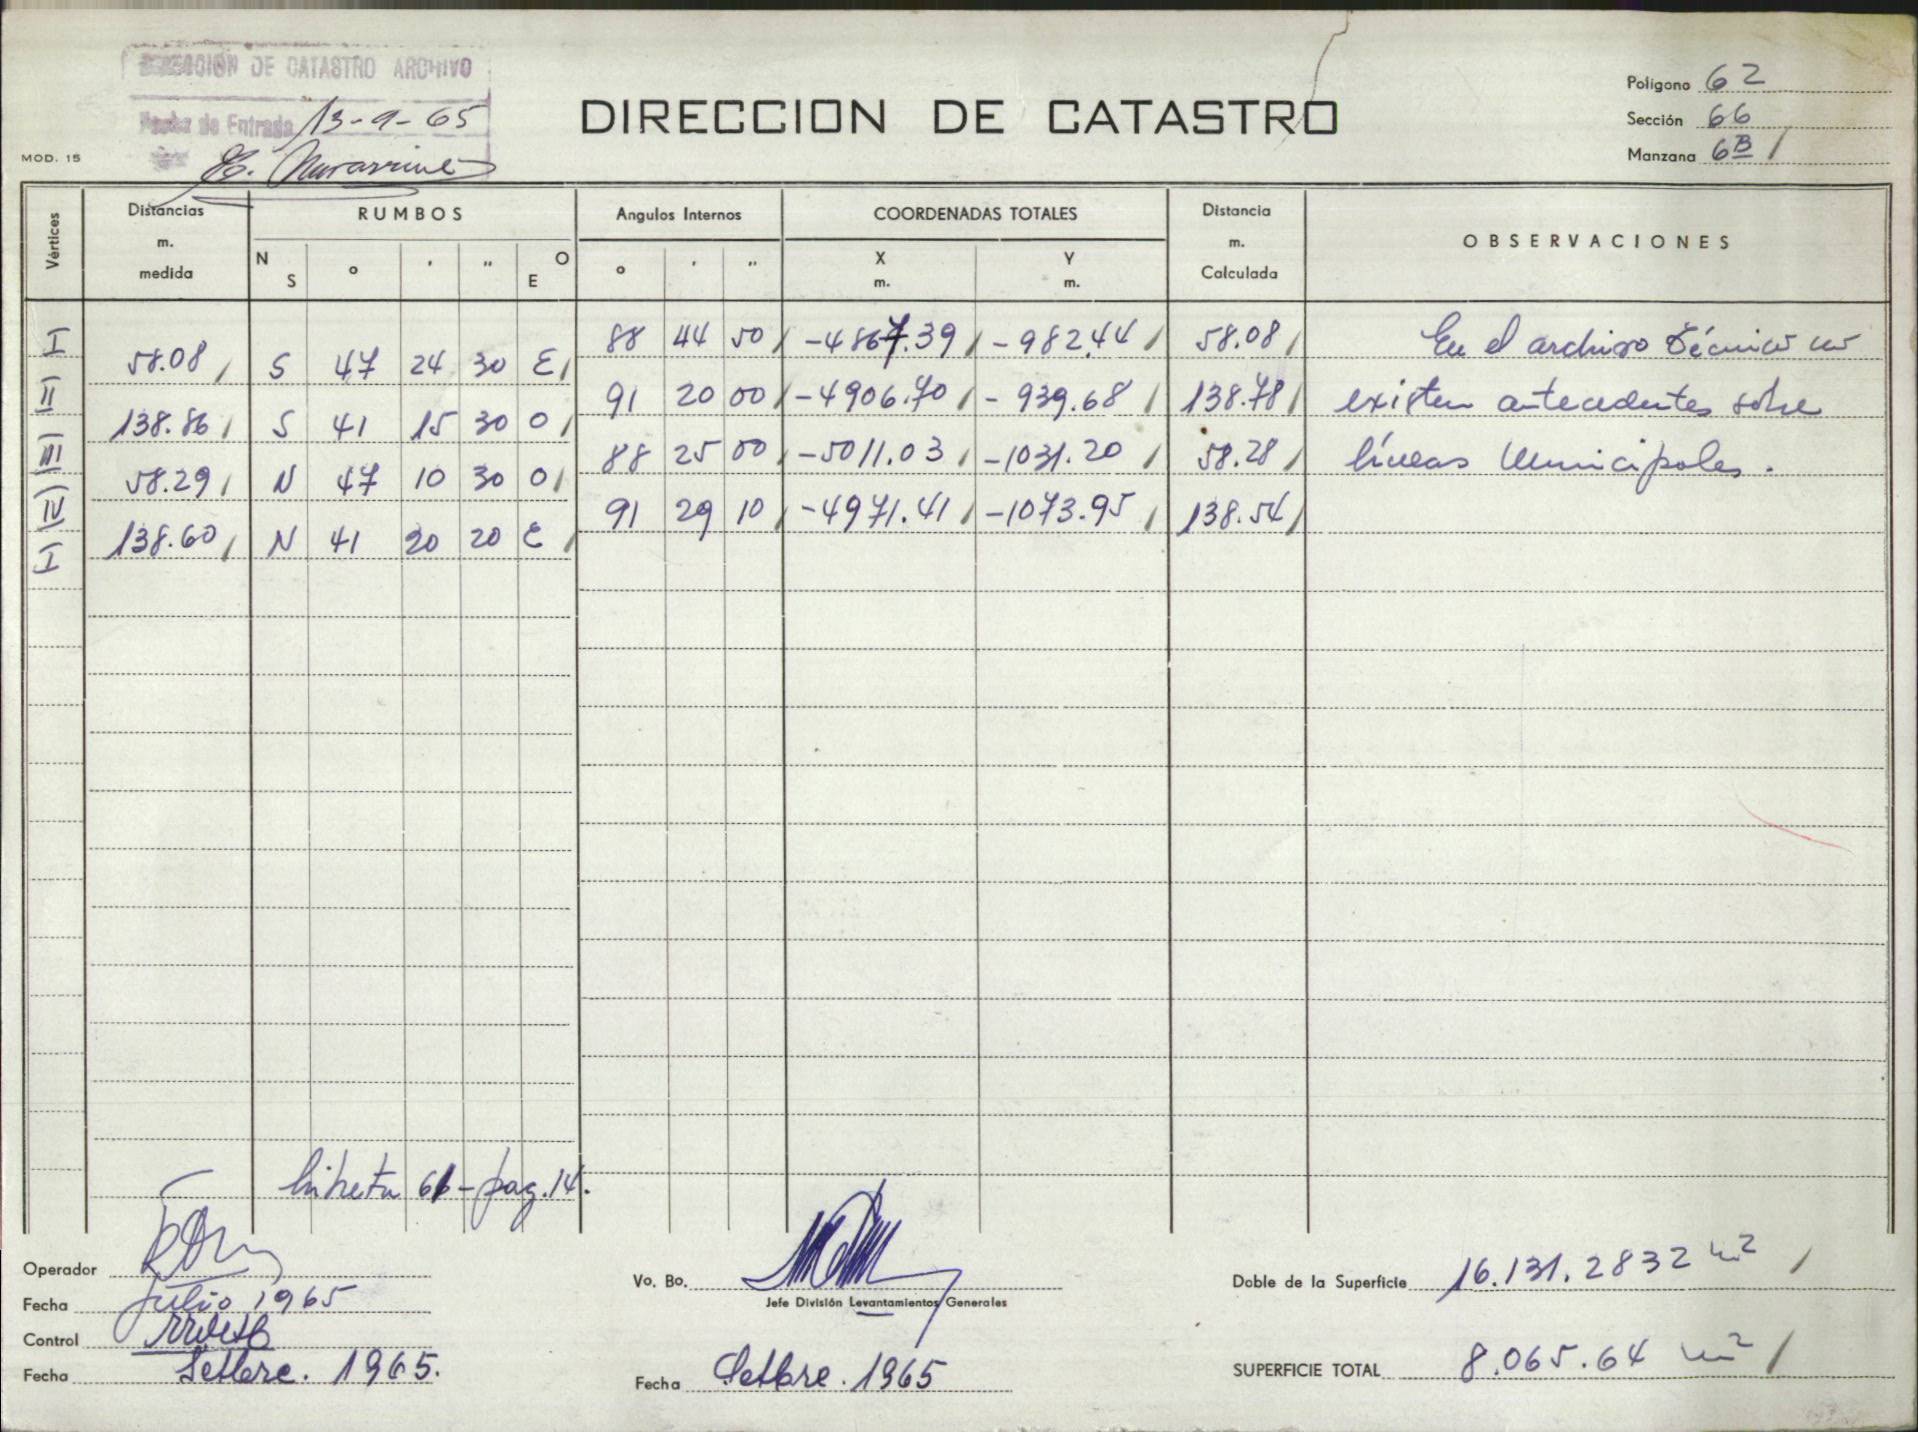 DIRECCION DE CATASTRO ARCHIVO
Fecha de Entrada 13-9-65
MOD. 15
DIRECCION DE CATASTRO
Polígono 62
Sección 66
Manzana 6B
Vértices
Distancias m. medida
RUMBOS
N S ° ' " O E
Angulos Internos
° ' "
COORDENADAS TOTALES
X m. Y m.
Distancia m. Calculada
OBSERVACIONES
I 88 44 50 -4867.39 -982.44 58.08 En el archivo técnico no
58.08 S 47 24 30 E
II 91 20 00 -4906.70 -939.68 138.78 existen antecedentes sobre
138.86 S 41 15 30 O
III 88 25 00 -5011.03 -1031.20 58.28 líneas Municipales.
58.29 N 47 10 30 O
IV 91 29 10 -4971.41 -1073.95 138.54
138.60 N 41 20 20 E
I
libreta 61-pag.14.
Operador
Fecha Julio 1965
Control
Fecha Setbre. 1965.
Vo. Bo.
Jefe División Levantamientos Generales
Fecha Setbre. 1965
Doble de la Superficie 16.131.2832 m²
SUPERFICIE TOTAL 8.065.64 m²